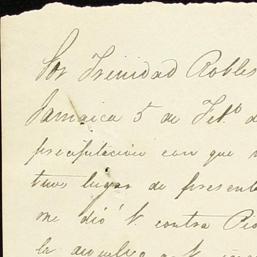 Sor Trinidad Robles
Jamaica 5 de Febo d
precipitacion con que
tuvo lugar de present
me dió V. contra
le devuelvo a V.